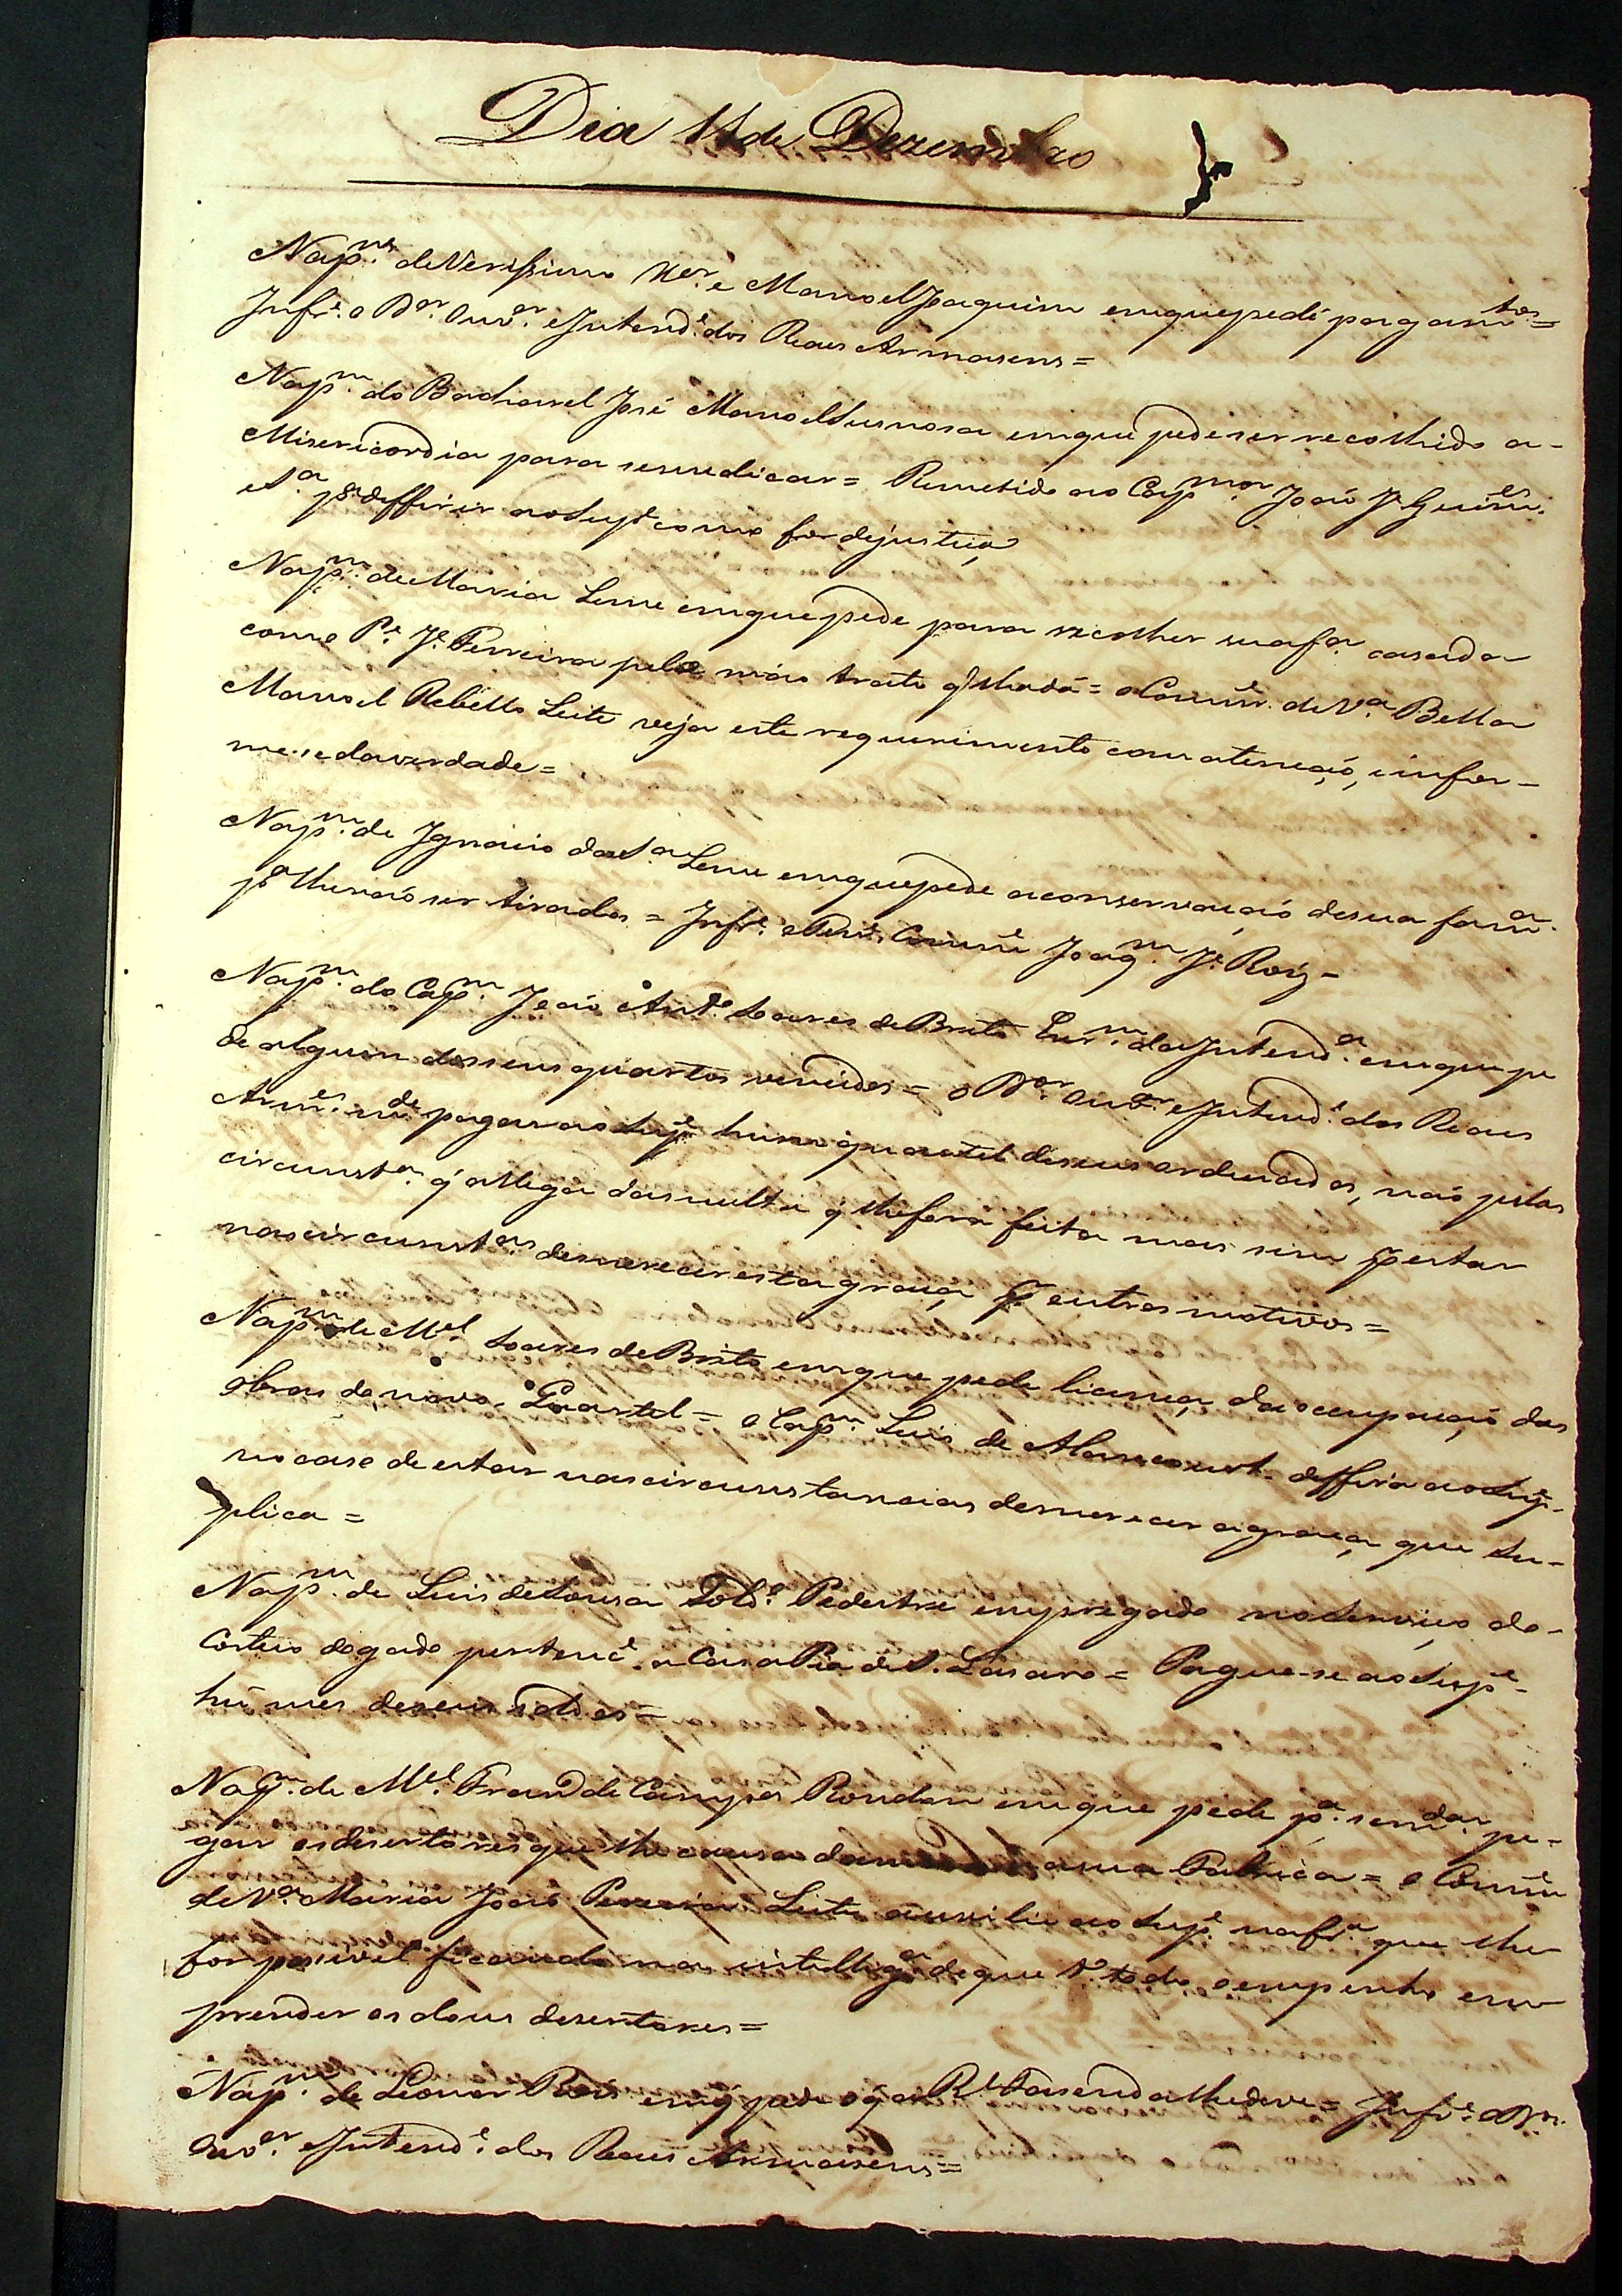 Dia 11 de Dezembro
Nap.m de Verissimo X.er e Manoel Joaquim em que pede pagam.tos =
Inf.e o D.or Ouv.or e Intend.e dos Reaes Armasens =
Nap.m do Bacharel José Manoel em que pede ser recolhido a-
Misericordia para se medicar = Remetido ao Cap.m mor João J.e Guim.es
p.a diffirir ao Sup.e como for de justiça
Nap.m de Maria Leme em que pede para recolher sua f.a casada
com o P.e J.e Ferreira pelo máo trato q' lhe da = o Comm.e de V.a Bella
Manoel Rebello Leite veja este requerimento com atenção, e infor-
me-se da verdade =
Nap.m de Ignacio da S.a Leme em que pede a conservação de sua fam.a
p.a lhe não ser tirada = Inf.e o Ten.e Comm.e Joaq.m J.e Roiz =
Nap.m do Cap.m João Ant.o Soares de Brito Escr.m da Intend.a em que pe
de algum dos seus quarteis vencidos = o D.or Ouv.or e Intend.e dos Reaes
Arm.es m.de pagar ao Sup.e hum quartel de seus ordenados, não pelas
circunst.as q' allega da multa q' lhe fora feita mas sim p.r estar
nas circunst.as de merecer esta graça p.r outros motivos =
Nap.m de M.el Soares de Brito em que pede licença da ocupação das
obras do novo Quartel = o Cap.m Luis de Alincourt diffira ao Sup.e
no caso de estar nas circunstancias de merecer a graça, que su-
plica =
Nap.m de Luis de Sousa Sold.o Pedestre empregado no serviço do
Corteio do gado pertenc.e a Casa Pia de S. Lasaro = Pague-se ao Sup.e
hũ mes de seus soldos =
Nap.m de M.el de Campos Rondon em que pede p.a se m.dar pe-
gar os desertores que lhe causa a sua Fabrica = o Comm.e
de V.a Maria João Pereira Leite auxilie ao Sup.e na f.a que lhe
for possivel ficando na intellig.a de que todo o empenho em
prender os dous desertores =
Nap.m de Leonor em q' pede o q' a R.l Fasenda lhe deve = Inf.e o D.or
Ouv.or e Intend.e dos Reaes Armasens =